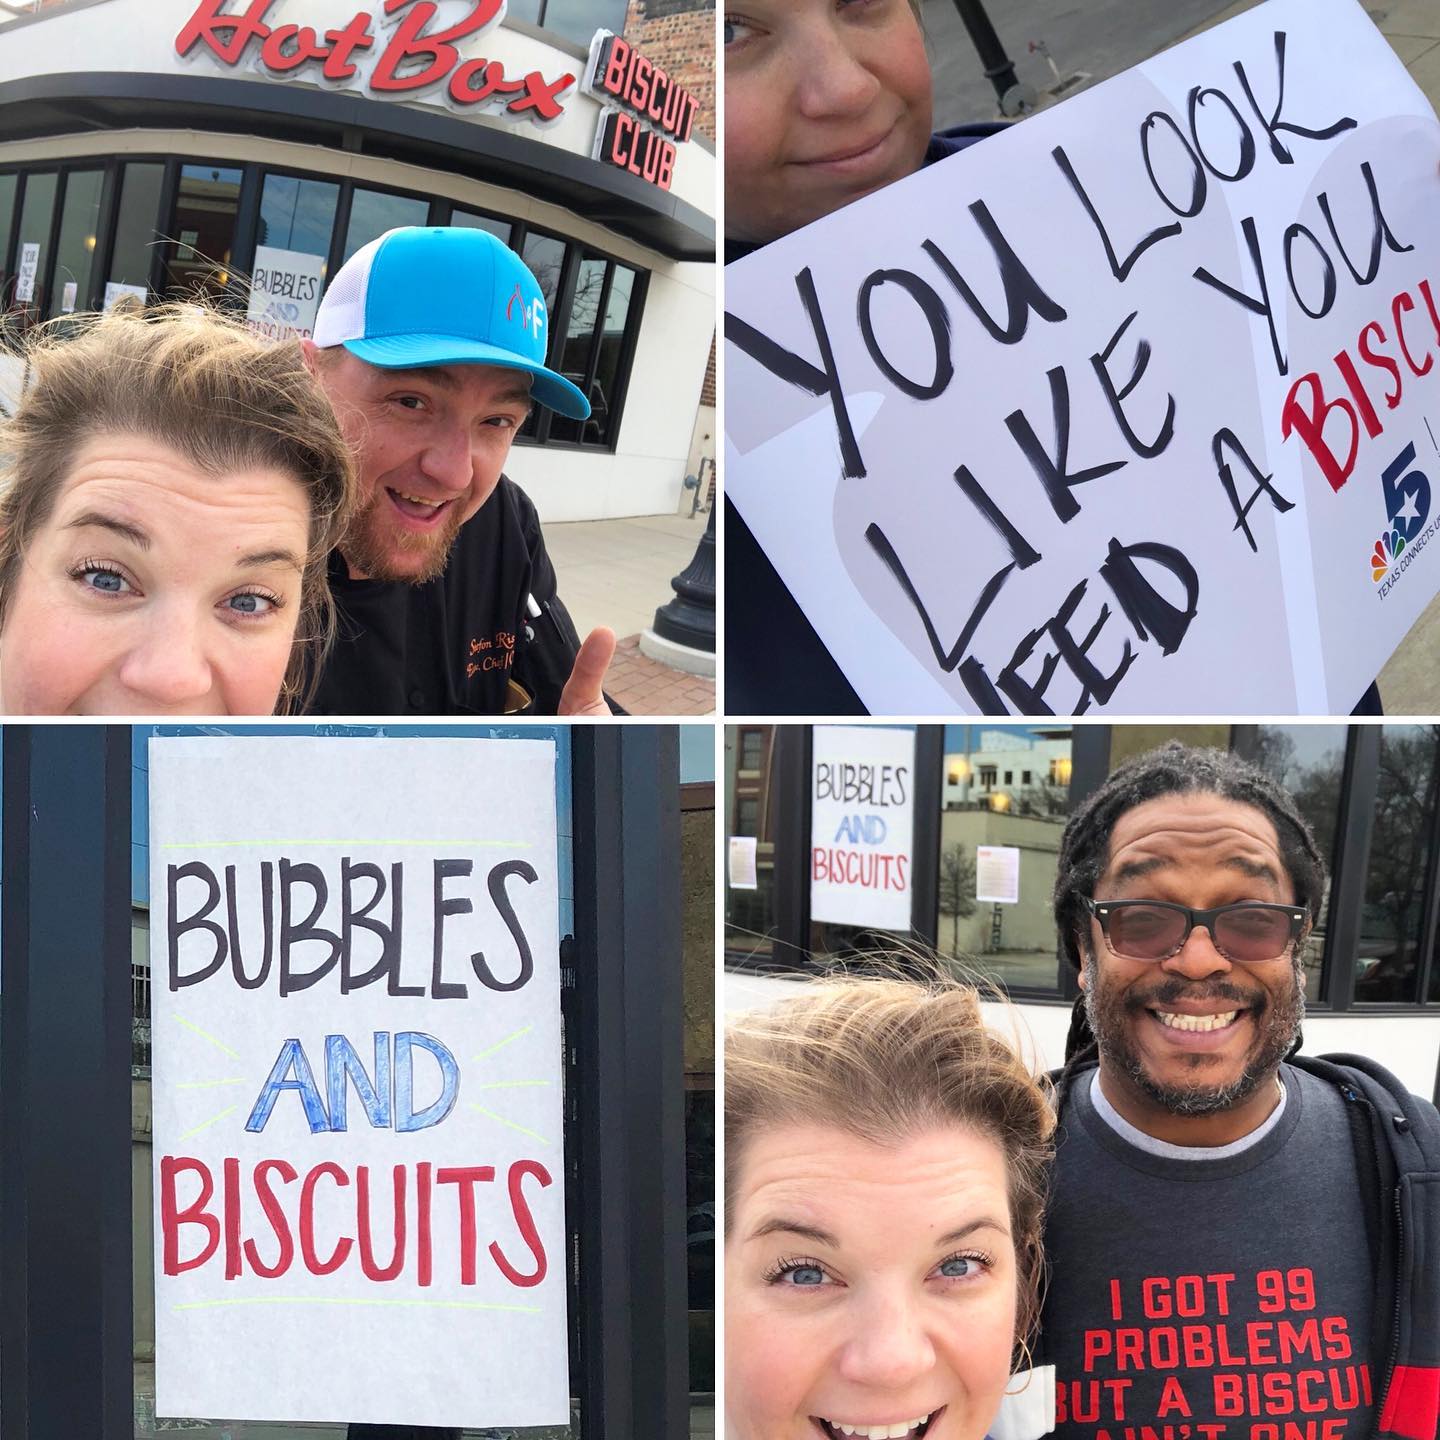 HotBox
BISCUIT
CLUB
BUBBLES
AND
BISCUITS
F
Stefon
Exe. Chef
YOU LOOK
LIKE YOU
NEED A BISCU
5
TEXAS CONNECTS US
BUBBLES
AND
BISCUITS
BUBBLES
AND
BISCUITS
I GOT 99
PROBLEMS
BUT A BISCUI
AIN'T ONE